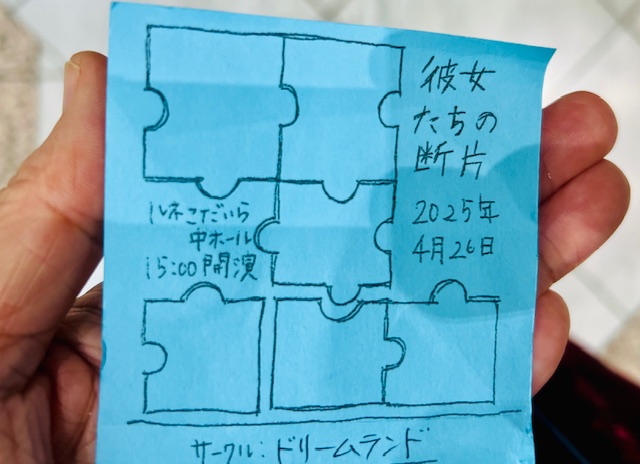 彼女
たちの
断片
2025年
4月26日
ルネこだいら
中ホール
15:00開演
サークル:ドリームランド